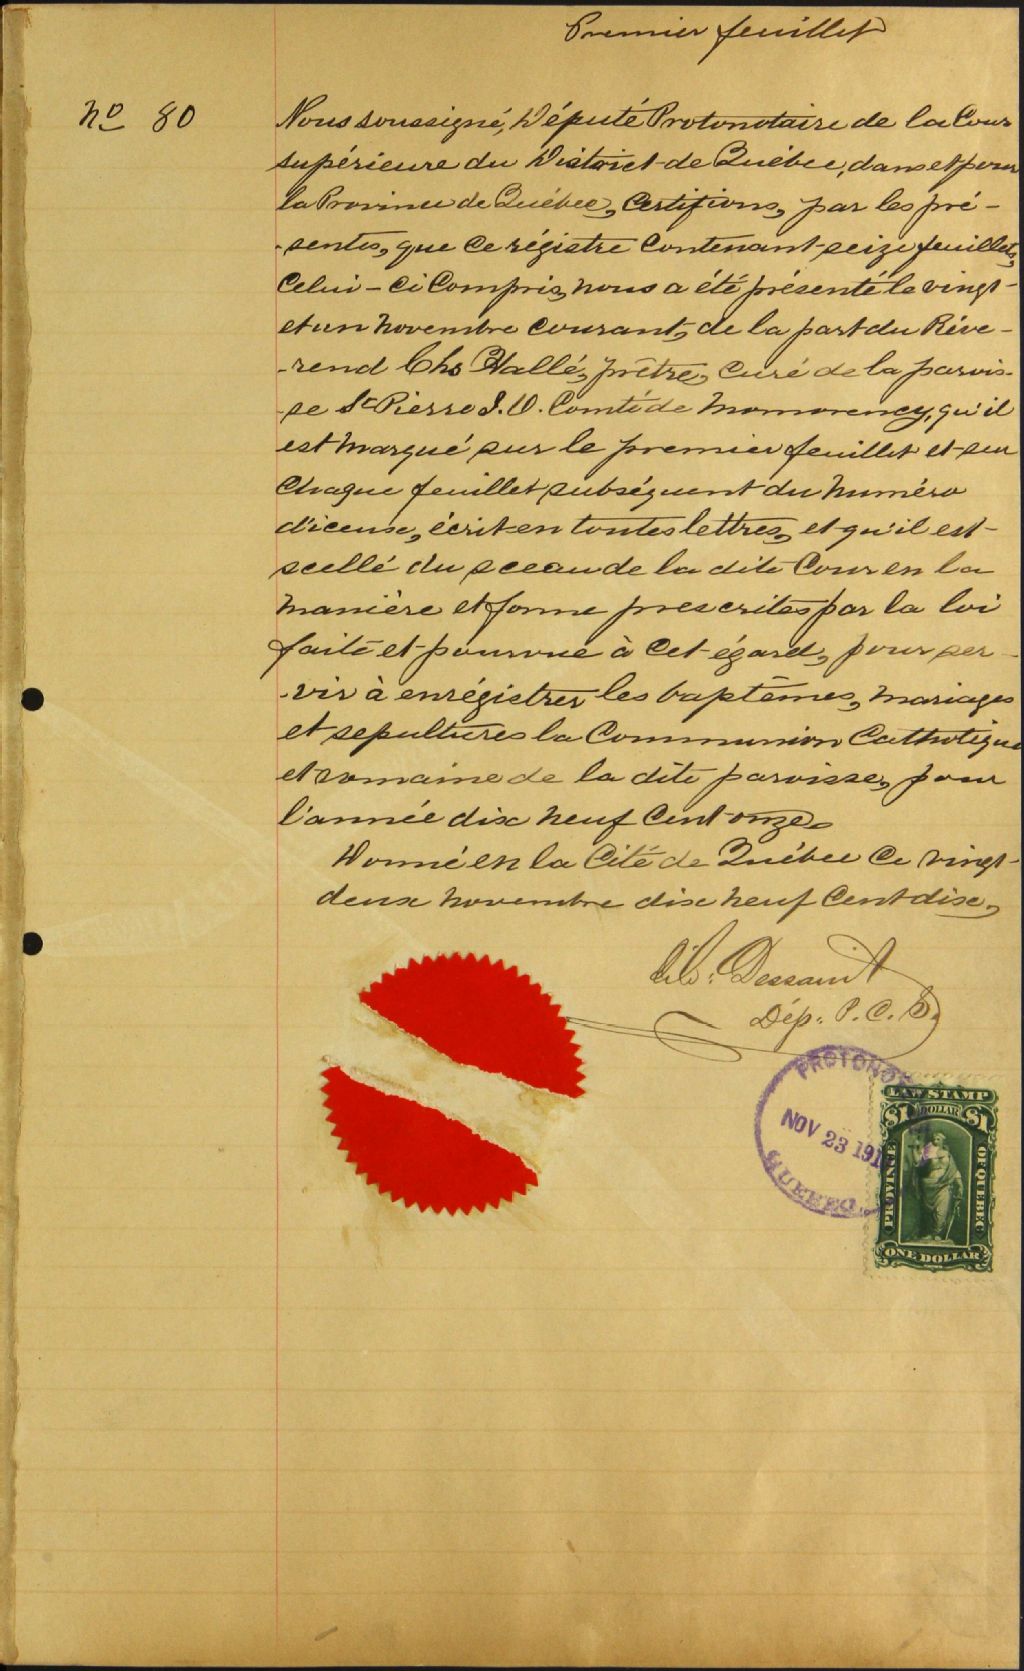 Premier feuillet
No 80
Nous soussigné, Député Protonotaire de la Cour
supérieure du District de Québec, dans et pour
la Province de Québec, Certifions, par les pré-
-sentes, que ce régistre contenant seize feuillets,
celui-ci compris, nous a été présenté le vingt-
et un novembre courant, de la part du Réve-
-rend Chs Hallé, prêtre, curé de la parois-
-se St Pierre I. O. Comté de Momorency, qu'il
est marqué sur le premier feuillet et sur
chaque feuillet subséquent du numéro
d'iceux, écrit en toutes lettres, et qu'il est
scellé du sceau de la dite Cour en la
manière et forme prescrites par la loi
faite et pourvue à cet égard, pour ser-
-vir à enrégistrer les baptêmes, mariages
et sepultures la Communion Catholique
et romaine de la dite paroisse, pour
l'année dix neuf cent onze.
Donné en la Cité de Québec ce vingt-
deux novembre dix neuf cent dix,
Dessaint
Dép. P. C. S.
NOV 23 191
QUEBEC
LAW STAMP
$1 DOLLAR $1
PROVINCE OF QUEBEC
ONE DOLLAR